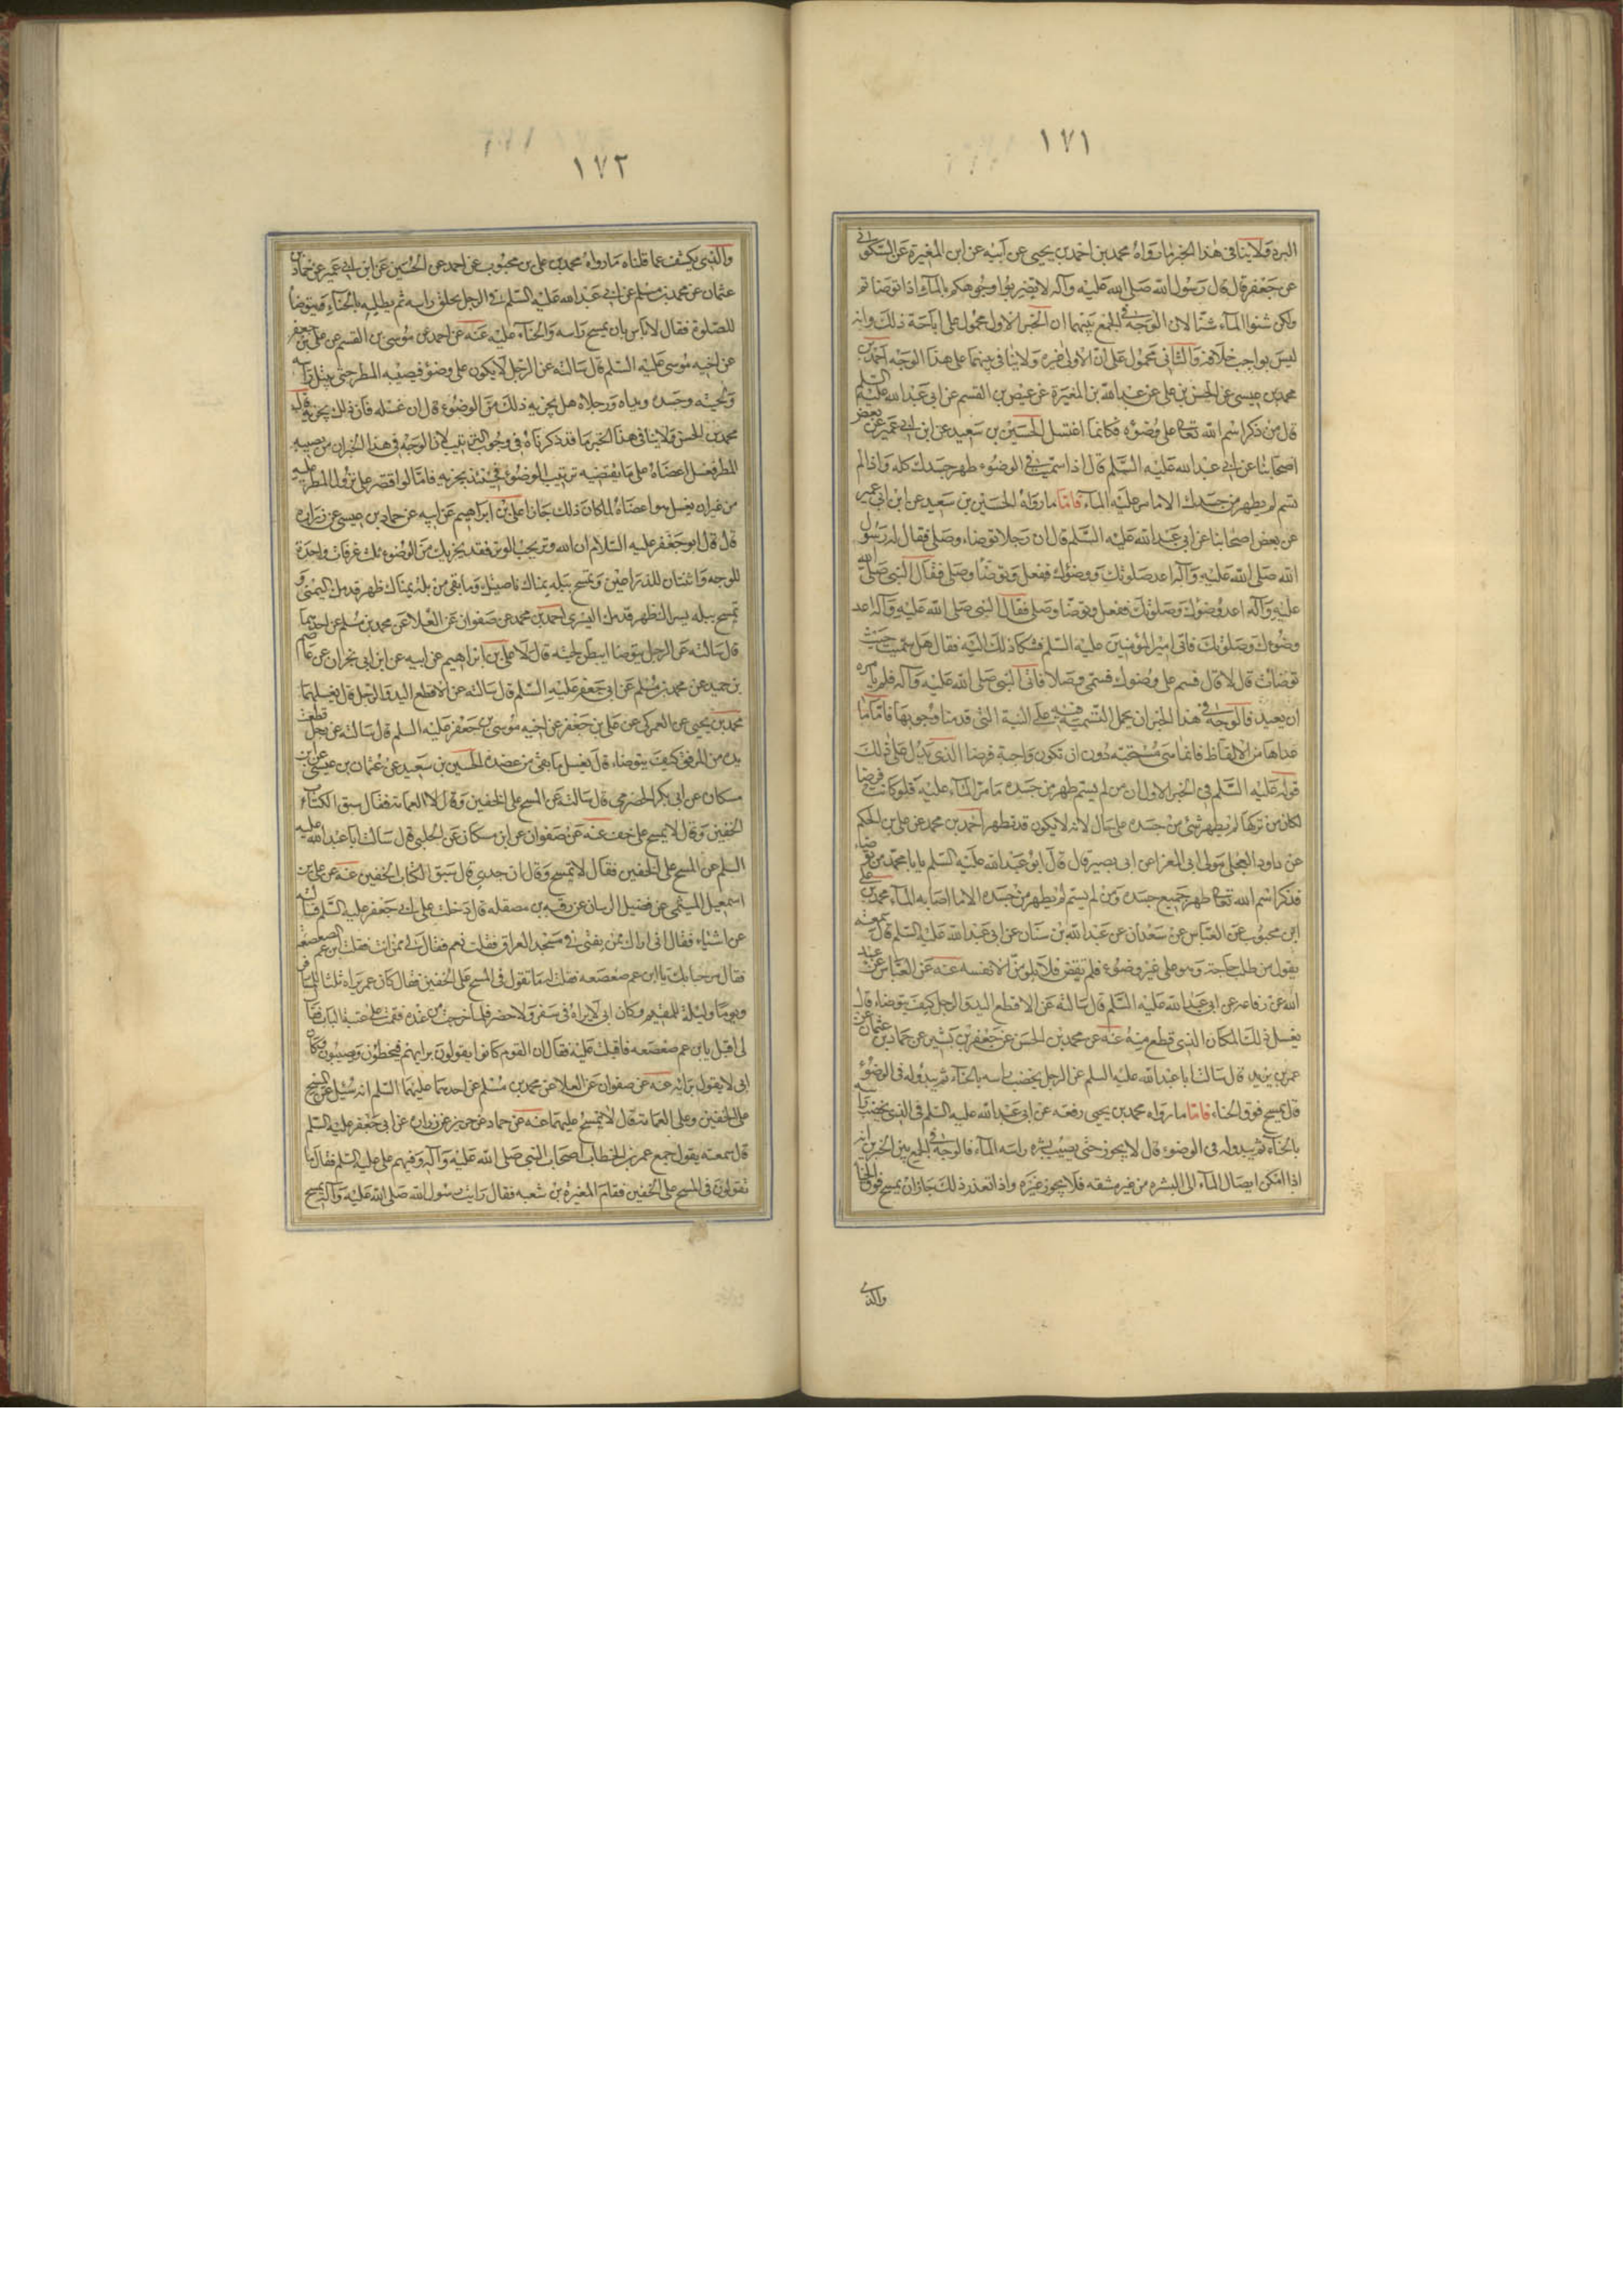 ١٧١
البرد ولا ينافى هذا الخبر ما رواه محمد بن احمد بن يحيى عن ابيه عن ابن المغيرة عن السكونى
عن جعفر قال قال رسول الله صلى الله عليه وآله لا تضربوا وجوهكم بالماء اذا توضاتم
ولكن شنوا الماء شنا لان الوجه فى الجمع بينهما ان الخبر الاول محمول على اباحة ذلك وانه
ليس بواجب خلافه والثانى محمول على ان الاولى غيره ولا ينافى بينهما على هذا الوجه احمد بن
محمد بن عيسى عن الحسن بن على عن عبد الله بن المغيرة عن عيص بن القسم عن ابى عبد الله عليه السلم
قال من ذكر اسم الله تعالى على وضوئه فكانما اغتسل الحسين بن سعيد عن ابن ابى عمير عن بعض
اصحابنا عن ابى عبد الله عليه السلم قال اذا سميت فى الوضوء طهر جسدك كله واذا لم
تسم لم يطهر من جسدك الا ما مر عليه الماء فاما ما رواه الحسين بن سعيد عن ابن ابى عمير
عن بعض اصحابنا عن ابى عبد الله عليه السلم قال ان رجلا توضاء وصلى فقال له رسول
الله صلى الله عليه وآله اعد صلوتك ووضوئك ففعل وتوضا وصلى فقال النبى صلى الله
عليه وآله اعد وضوئك وصلوتك ففعل وتوضا وصلى فقال النبى صلى الله عليه وآله اعد
وضوئك وصلوتك فاتى امير المؤمنين عليه السلم فشكا ذلك اليه فقال هل سميت حيث
توضات قال لا قال فسم على وضوئك فسمى وصلا فاتى النبى صلى الله عليه وآله فلم يامره
ان يعيد فالوجه فى هذا الخبر ان يحمل التسمية فيه على النية التى قدمنا وجوبها فاما ما
عداها من الالفاظ فانما هى مستحبه دون ان تكون واجبة فرضا الذى يدل على ذلك
قوله عليه السلم فى الخبر الاول ان من لم يسم طهر من جسده ما مر الماء عليه فلو كانت فرضا
لكان من تركها لم يطهر شئ من جسده على حال لانه لا يكون قد تطهر احمد بن محمد عن على بن الحكم
عن داود العجلى مولى ابى المغرا عن ابى بصير قال قال ابو عبد الله عليه السلم يابا محمد من توضاء
فذكر اسم الله تعالى طهر جميع جسده ومن لم يسم لم يطهر من جسده الا ما اصابه الماء محمد بن على
ابن محبوب عن العباس عن سعدان عن عبد الله بن سنان عن ابى عبد الله عليه السلم قال سمعته
يقول من طلب حاجة وهو على غير وضوء فلم تقض فلا يلومن الا نفسه عنه عن العباس عن عبد
الله عن رفاعه عن ابى عبد الله عليه السلم قال سالته عن الاقطع اليد والرجل كيف يتوضاء قال
يغسل ذلك المكان الذى قطع منه عنه عن محمد بن الحسن عن جعفر بن بشير عن حماد بن عثمان عن
عمر بن يزيد قال سالت ابا عبد الله عليه السلم عن الرجل يخضب راسه بالحناء ثم يبدو له فى الوضوء
قال يمسح فوق الحناء فاما ما رواه محمد بن يحيى رفعه عن ابى عبد الله عليه السلم فى الذى يخضب راسه
بالحناء ثم يبدو له فى الوضوء قال لا يجوز حتى يصيب بشره راسه الماء فالوجه فى الجمع بين الخبرين انه
اذا امكن ايصال الماء الى البشره من غير مشقه فلا يجوز غيره واذا تعذر ذلك جاز ان يمسح فوق الحنا
والذى
١٧٢
والذى يكشف عما قلناه ما رواه محمد بن على بن محبوب عن احمد عن الحسين عن ابن ابى عمير عن حماد بن
عثمان عن محمد بن مسلم عن ابى عبد الله عليه السلم فى الرجل يحلق راسه ثم يطليه بالحناء ويتوضا
للصلوة فقال لا باس بان يمسح راسه والحناء عليه عنه عن احمد عن موسى بن القسم عن على بن جعفر
عن اخيه موسى عليه السلم قال سالته عن الرجل لا يكون على وضوء فيصيبه المطر حتى يبتل راسه
ولحيته وجسده ويداه ورجلاه هل يجزيه ذلك من الوضوء قال ان غسله فان ذلك يجزيه قال
محمد بن الحسن ولا ينافى هذا الخبر ما قد ذكرناه فى وجوب الترتيب لان الوجه فى هذا الخبر ان من يصيبه
المطر فغسل اعضاه على ما يقتضيه ترتيب الوضوء فحينئذ يجزيه فاما لو اقتصر على نزول المطر عليه
من غير ان يغسل هو اعضاه لما كان ذلك جائزا على بن ابراهيم عن ابيه عن حماد بن عيسى عن زراره
قال قال ابو جعفر عليه السلام ان الله وتر يحب الوتر فقد يجزيك من الوضوء ثلث غرفات واحدة
للوجه واثنتان للذراعين وتمسح ببله يمناك ناصيتك وما بقى من بلة يمناك ظهر قدمك اليمنى و
تمسح ببله يسراك ظهر قدمك اليسرى احمد بن محمد عن صفوان عن العلا عن محمد بن مسلم عن احدهما
قال سالته عن الرجل يتوضا ايبطن لحيته قال لا على بن ابراهيم عن ابيه عن ابن ابى نجران عن عاصم
بن حميد عن محمد بن مسلم عن ابى جعفر عليه السلم قال سالته عن الاقطع اليد والرجل قال يغسلهما
محمد بن يحيى عن العمركى عن على بن جعفر عن اخيه موسى بن جعفر عليه السلم قال سالته عن رجل قطعت
يده من المرفق كيف يتوضاء قال يغسل ما بقى من عضده الحسين بن سعيد عن عثمان بن عيسى عن ابن
مسكان عن ابى بكر الحضرمى قال سالته عن المسح على الخفين وقال لا العمامة فقال سبق الكتاب
الخفين وقال لا يمسح على خف عنه عن صفوان عن ابن مسكان عن الحلبى قال سالت ابا عبد الله عليه
السلم عن المسح على الخفين فقال لا تمسح وقال ان جدى قال سبق الكتاب الخفين عنه عن على بن
اسمعيل الميثمى عن فضيل الرسان عن رقبه بن مصقله قال دخلت على ابى جعفر عليه السلم فسالته
عن اشياء فقال انى اراك ممن يفتى فى مسجد العراق فقلت نعم فقال لى ممن انت فقلت ابن عم لصعصعه
فقال مرحبا بك يا ابن عم صعصعه فقلت له ما تقول فى المسح على الخفين فقال كان عمر يراه ثلثا للمسافر
ويوما وليلة للمقيم وكان ابى لا يراه فى سفر ولا حضر فلما خرجت من عنده فقمت على عتبة الباب فقال
لى اقبل يابن عم صعصعه فاقبلت عليه فقال ان القوم كانوا يقولون برايهم فيخطؤن ويصيبون وكان
ابى لا يقول برايه عنه عن صفوان عن العلا عن محمد بن مسلم عن احدهما عليهما السلم انه سئل عن المسح
على الخفين وعلى العمامة قال لا تمسح عليهما عنه عن حماد عن حريز عن زرارة عن ابى جعفر عليه السلم
قال سمعته يقول جمع عمر بن الخطاب اصحاب النبى صلى الله عليه وآله وفيهم على عليه السلم فقال ما
تقولون فى المسح على الخفين فقام المغيرة بن شعبه فقال رايت رسول الله صلى الله عليه وآله يمسح